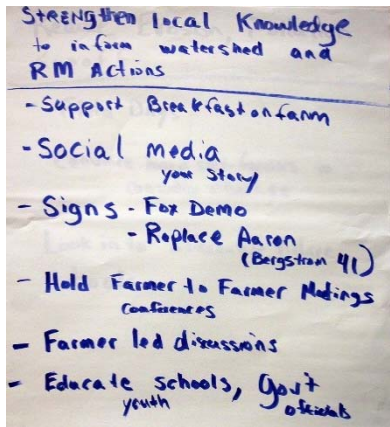 Strengthen local Knowledge
to inform watershed and
RM Actions
- Support Breakfast on farm
- Social media
your story
- Signs - Fox Demo
- Replace Aaron
(Bergstrom 41)
- Hold Farmer to Farmer Meetings
conferences
- Farmer led discussions
- Educate schools, Gov't
youth officials